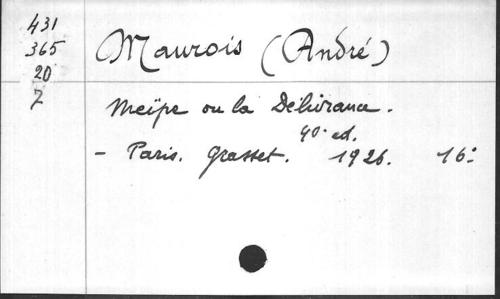 431
365
20
7
Maurois (André)
Meïpe ou la Délivrance.
40e ed.
- Paris. Grasset. 1926. 16°